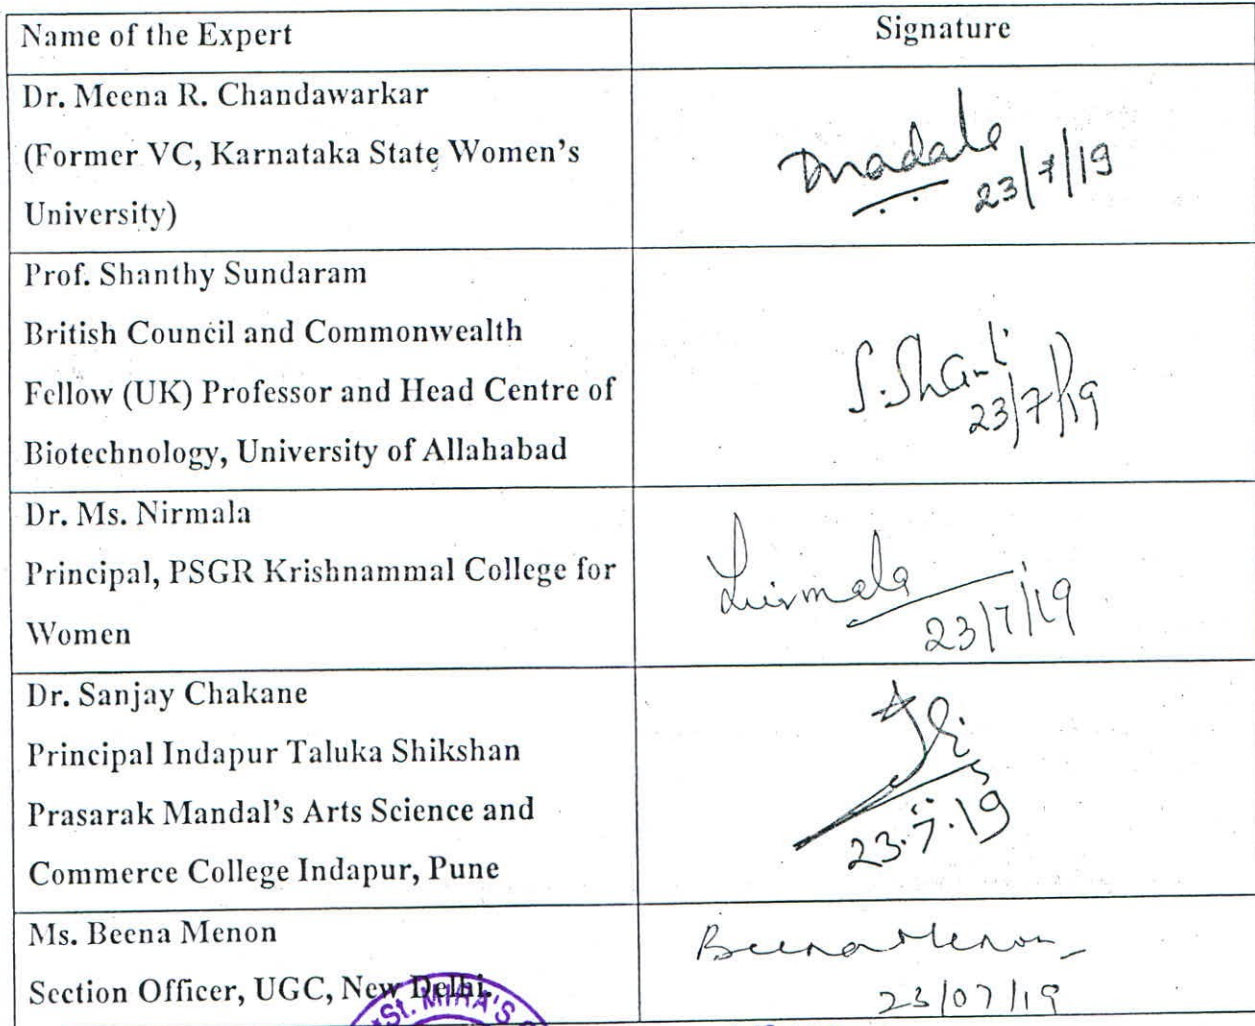 Name of the Expert
Signature
Dr. Meena R. Chandawarkar
(Former VC, Karnataka State Women's
University)
23/7/19
Prof. Shanthy Sundaram
British Council and Commonwealth
Fellow (UK) Professor and Head Centre of
Biotechnology, University of Allahabad
S. Shanti
23/7/19
Dr. Ms. Nirmala
Principal, PSGR Krishnammal College for
Women
Nirmala
23/7/19
Dr. Sanjay Chakane
Principal Indapur Taluka Shikshan
Prasarak Mandal's Arts Science and
Commerce College Indapur, Pune
23.7.19
Ms. Beena Menon
Section Officer, UGC, New Delhi.
Beena Menon
23/07/19
St. MIRA'S